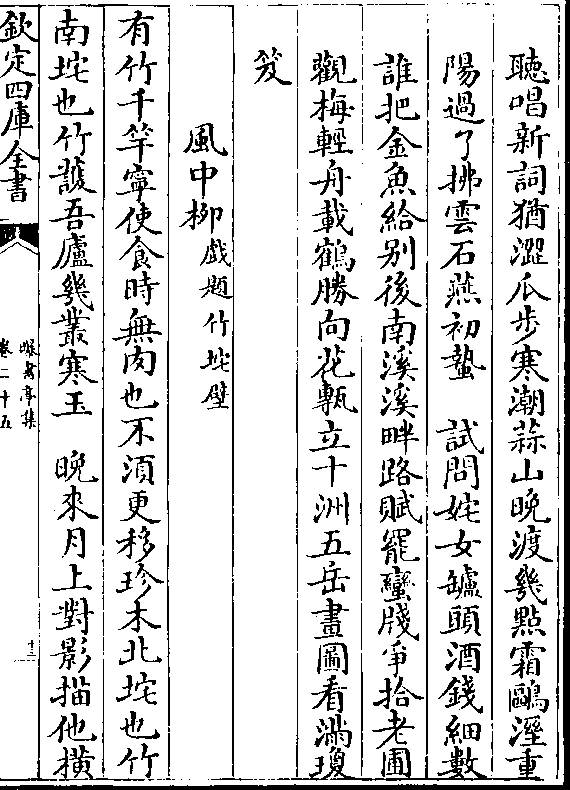 聽唱新詞猶澀瓜步寒潮蒜山晚渡幾點霜鷗溼重
陽過了拂雲石燕初蟄　試問姹女罏頭酒錢細數
誰把金魚給别後南溪溪畔路賦罷蠻牋爭拾老圃
觀梅輕舟載鶴勝向花甎立十洲五岳畫圖看滿瓊
笈
風中栁戯題竹垞壁
有竹千竿寜使食時無肉也不須更移珍木北垞也竹
南垞也竹䕶吾廬幾叢寒玉　晩來月上對影描他橫
欽定四庫全書
曝書亭集
卷二十五
十三